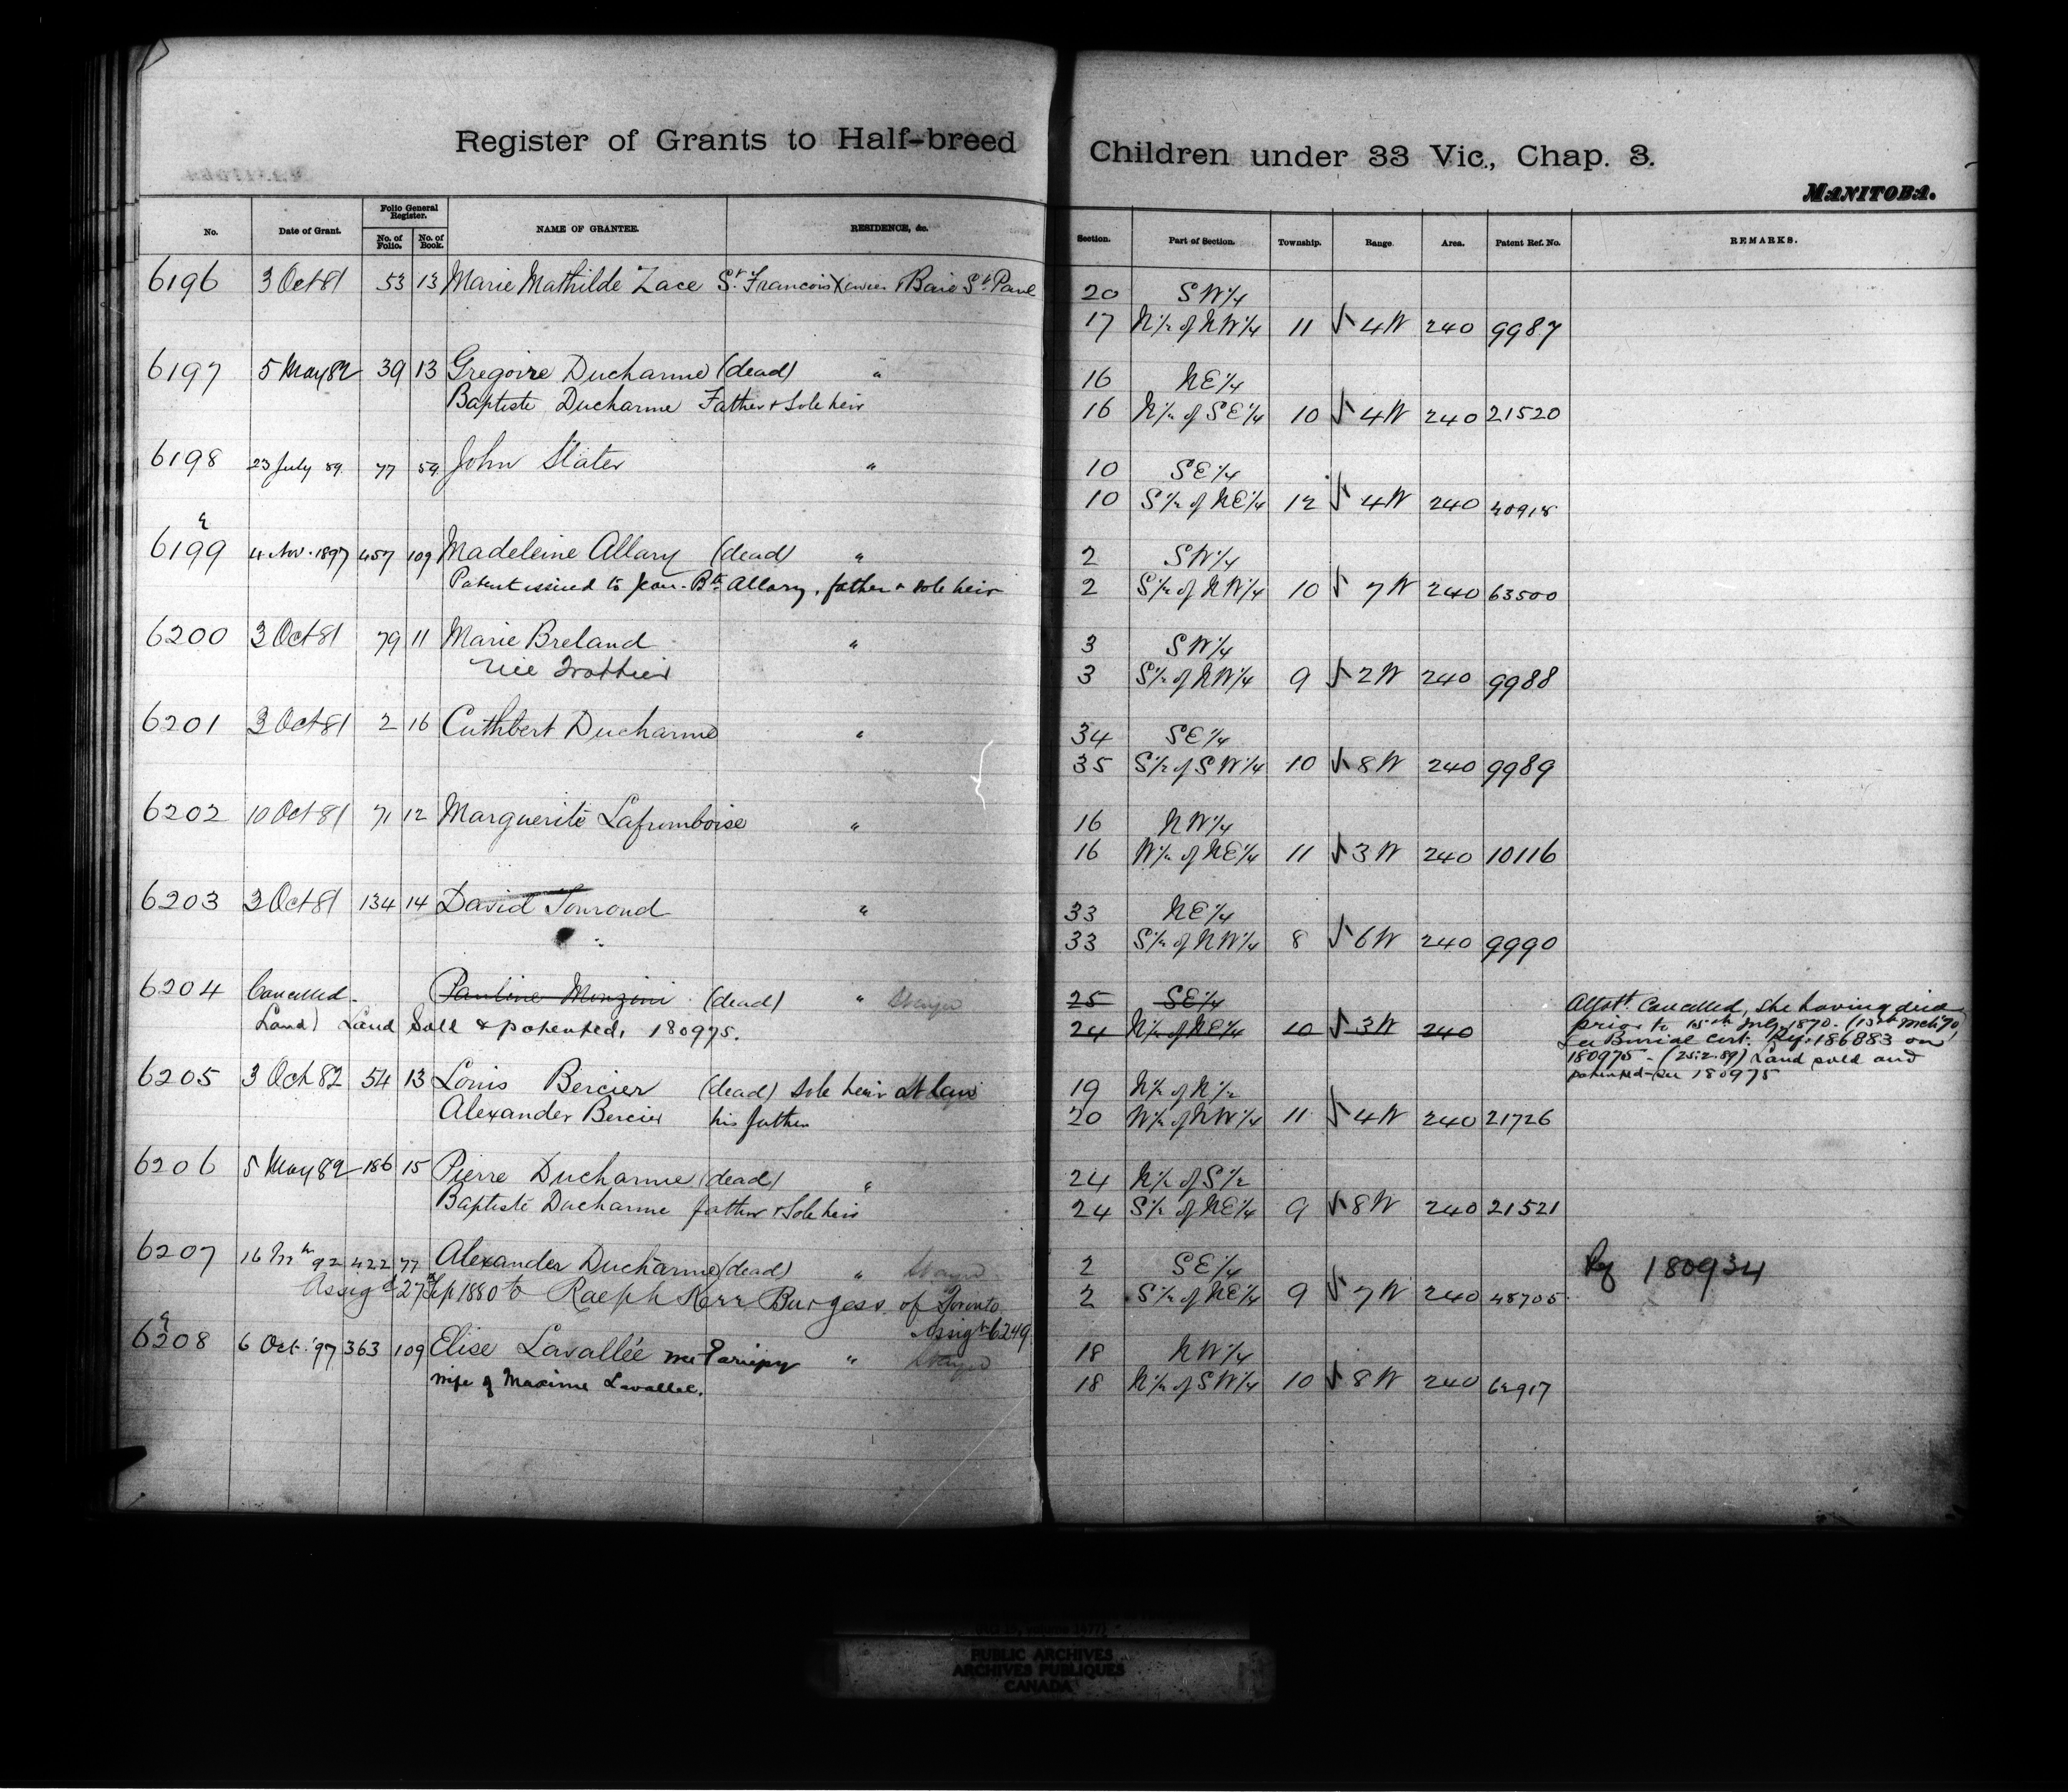 Register of Grants to Half-breed Children under 33 Vic., Chap. 3.
MANITOBA.
No. Date of Grant. Folio General Register. No. of Folio. No. of Book. NAME OF GRANTEE. RESIDENCE, &c. Section. Part of Section. Township. Range. Area. Patent Ref. No. REMARKS.
6196 3 Oct 81 53 13 Marie Mathilde Zace St. Francois Xavier & Baie St Paul 20 SW 1/4
17 N 1/2 of NW 1/4 11 4W 240 9987
6197 5 May 82 39 13 Gregoire Ducharme (dead) " 16 NE 1/4
Baptiste Ducharme Father & Sole heir 16 N 1/2 of SE 1/4 10 4W 240 21520
6198 23 July 89. 77 59 John Slater " 10 SE 1/4
10 S 1/2 of NE 1/4 12 4W 240 40918
6199 4 Nov. 1897 457 109 Madeleine Allary (dead) " 2 SW 1/4
Patent issued to Jean-Bte Allary, father & sole heir 2 S 1/2 of NW 1/4 10 7W 240 63500
6200 3 Oct 81 79 11 Marie Breland " 3 SW 1/4
née Trottier 3 S 1/2 of NW 1/4 9 2W 240 9988
6201 3 Oct 81 2 16 Cuthbert Ducharme " 34 SE 1/4
35 S 1/2 of SW 1/4 10 8W 240 9989
6202 10 Oct 81 71 12 Marguerite Lafromboise " 16 NW 1/4
16 W 1/2 of NE 1/4 11 3W 240 10116
6203 3 Oct 81 134 14 David Tourond " 33 NE 1/4
33 S 1/2 of NW 1/4 8 6W 240 9990
6204 Cancelled. Pauline Monzini (dead) " 25 SE 1/4 Allott. Cancelled, she having died
Land) Land Sold & patented, 180975. 24 N 1/2 of NE 1/4 10 3W 240 prior to 15th July 1870. (15th Mch '70)
See Burial Cert. Ref. 186883 on
180975 - (25.2.89) Land sold and
patented - see 180975
6205 3 Oct 82 54 13 Louis Bercier (dead) Sole heir at law 19 N 1/2 of N 1/2
Alexander Bercier his father 20 W 1/2 of NW 1/4 11 4W 240 21726
6206 5 May 82 186 15 Pierre Ducharme (dead) " 24 N 1/2 of S 1/2
Baptiste Ducharme father & Sole heir 24 S 1/2 of NE 1/4 9 8W 240 21521
6207 92 422 77 Alexander Ducharme (dead) " 2 SE 1/4 Ref 180934
Assigd 27 Sep 1880 to Ralph Kerr Burgess of Toronto 2 S 1/2 of NE 1/4 9 7W 240 48705
Assigt 6249
6208 6 Oct. '97 363 109 Elise Lavallée née Pariepy " 18 NW 1/4
wife of Maxime Lavallee. 18 N 1/2 of SW 1/4 10 8W 240 62917
PUBLIC ARCHIVES
ARCHIVES PUBLIQUES
CANADA